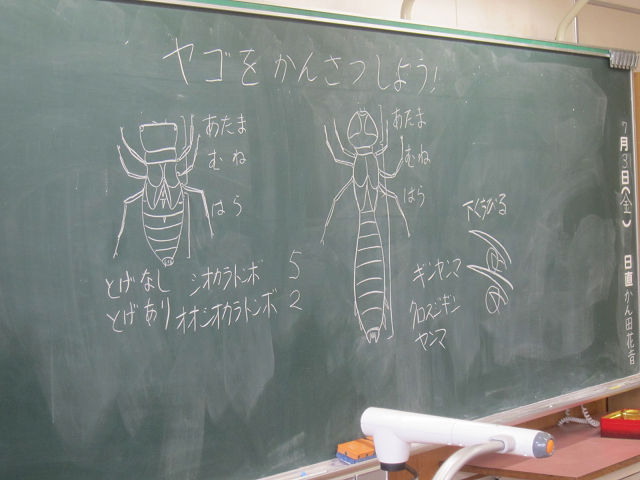 ヤゴをかんさつしよう!
あたま
むね
はら
とげなし シオカラトンボ 5
とげあり オオシオカラトンボ 2
あたま
むね
はら
ギンヤンマ
クロスジギン
ヤンマ
下くちびる
7月3日(金) 日直 かん田花音